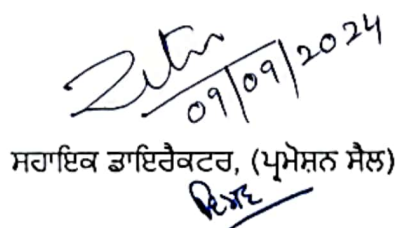 09/09/2024
ਸਹਾਇਕ ਡਾਇਰੈਕਟਰ, (ਪ੍ਰਮੋਸ਼ਨ ਸੈਲ)